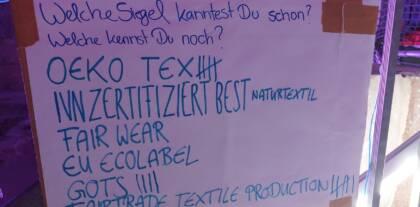 Welche Siegel kanntest Du schon?
Welche kennst Du noch?
OEKO TEX
IVN ZERTIFIZIERT BEST NATURTEXTIL
FAIR WEAR
EU ECOLABEL
GOTS IIII
FAIRTRADE TEXTILE PRODUCTION